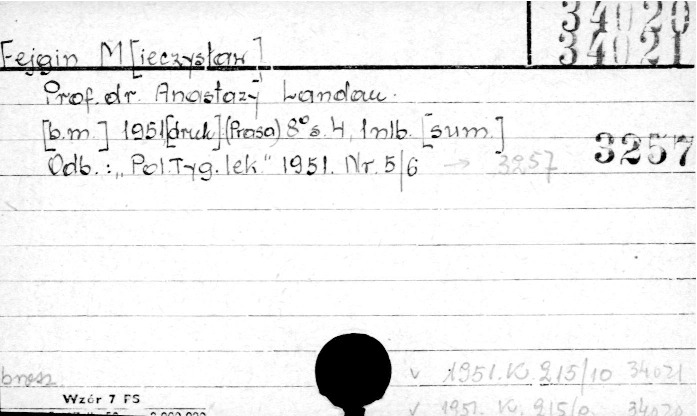 34020
34021
Fejgin M[ieczysław]
Prof. dr. Anastazy Landau.
[b.m.] 1951 [druk] (Prasa) 8° s. 4, 1 nlb. [sum.]
3257
Odb.: „Pol. Tyg. lek." 1951. Nr. 5/6 → 3257
brosz.
v 1951. K. 915/10 34021
Wzór 7 FS
v 1951. K. 915/9 34020